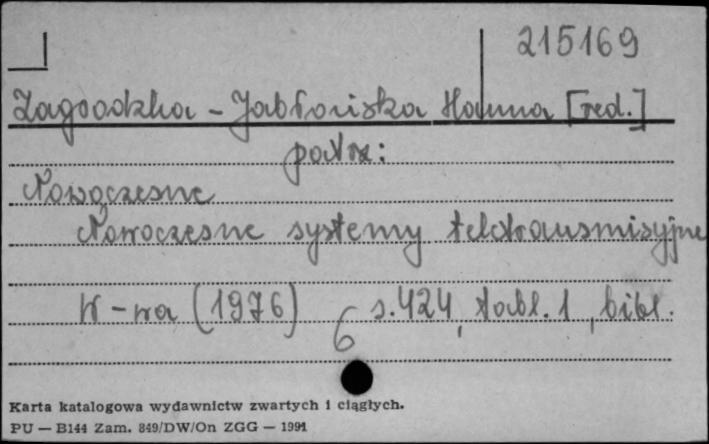 215169
Zagrodzka-Jabłońska Hanna [red.]
patrz:
Nowoczesne
Nowoczesne systemy teletransmisyjne
W-wa (1976) s. 424, tabl. 1, bibl.
6
Karta katalogowa wydawnictw zwartych i ciągłych.
PU — B144 Zam. 849/DW/On ZGG — 1991